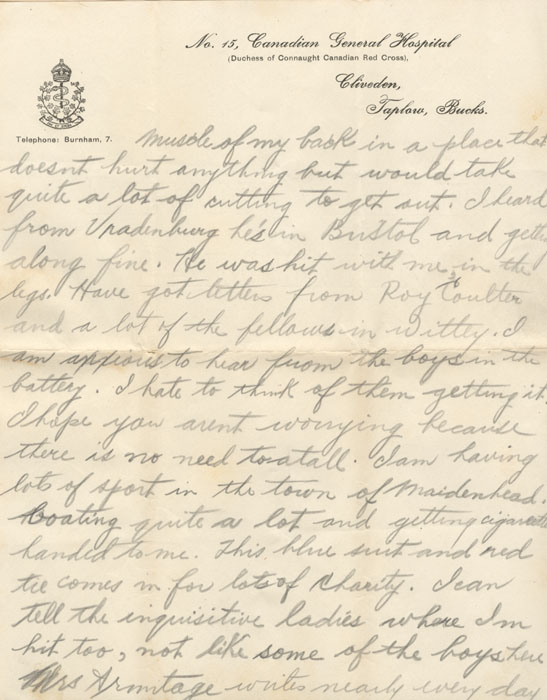 No. 15, Canadian General Hospital
(Duchess of Connaught Canadian Red Cross),
Cliveden,
Taplow, Bucks.
Telephone: Burnham, 7.
muscle of my back in a place that
doesnt hurt anything but would take
quite a lot of cutting to get out. I heard
from Vradenburg he's in Bristol and getting
along fine. He was hit with me in the
legs. Have got letters from Roy & Coulter
and a lot of the fellows in Witley. I
am anxious to hear from the boys in the
battery. I hate to think of them getting it.
I hope you arent worrying because
there is no need to atall. I am having
lots of sport in the town of Maidenhead.
Boating quite a lot and getting cigarettes
handed to me. This blue suit and red
tie comes in for lots of charity. I can
tell the inquisitive ladies where I'm
hit too, not like some of the boys here
Mrs Armitage writes nearly every day